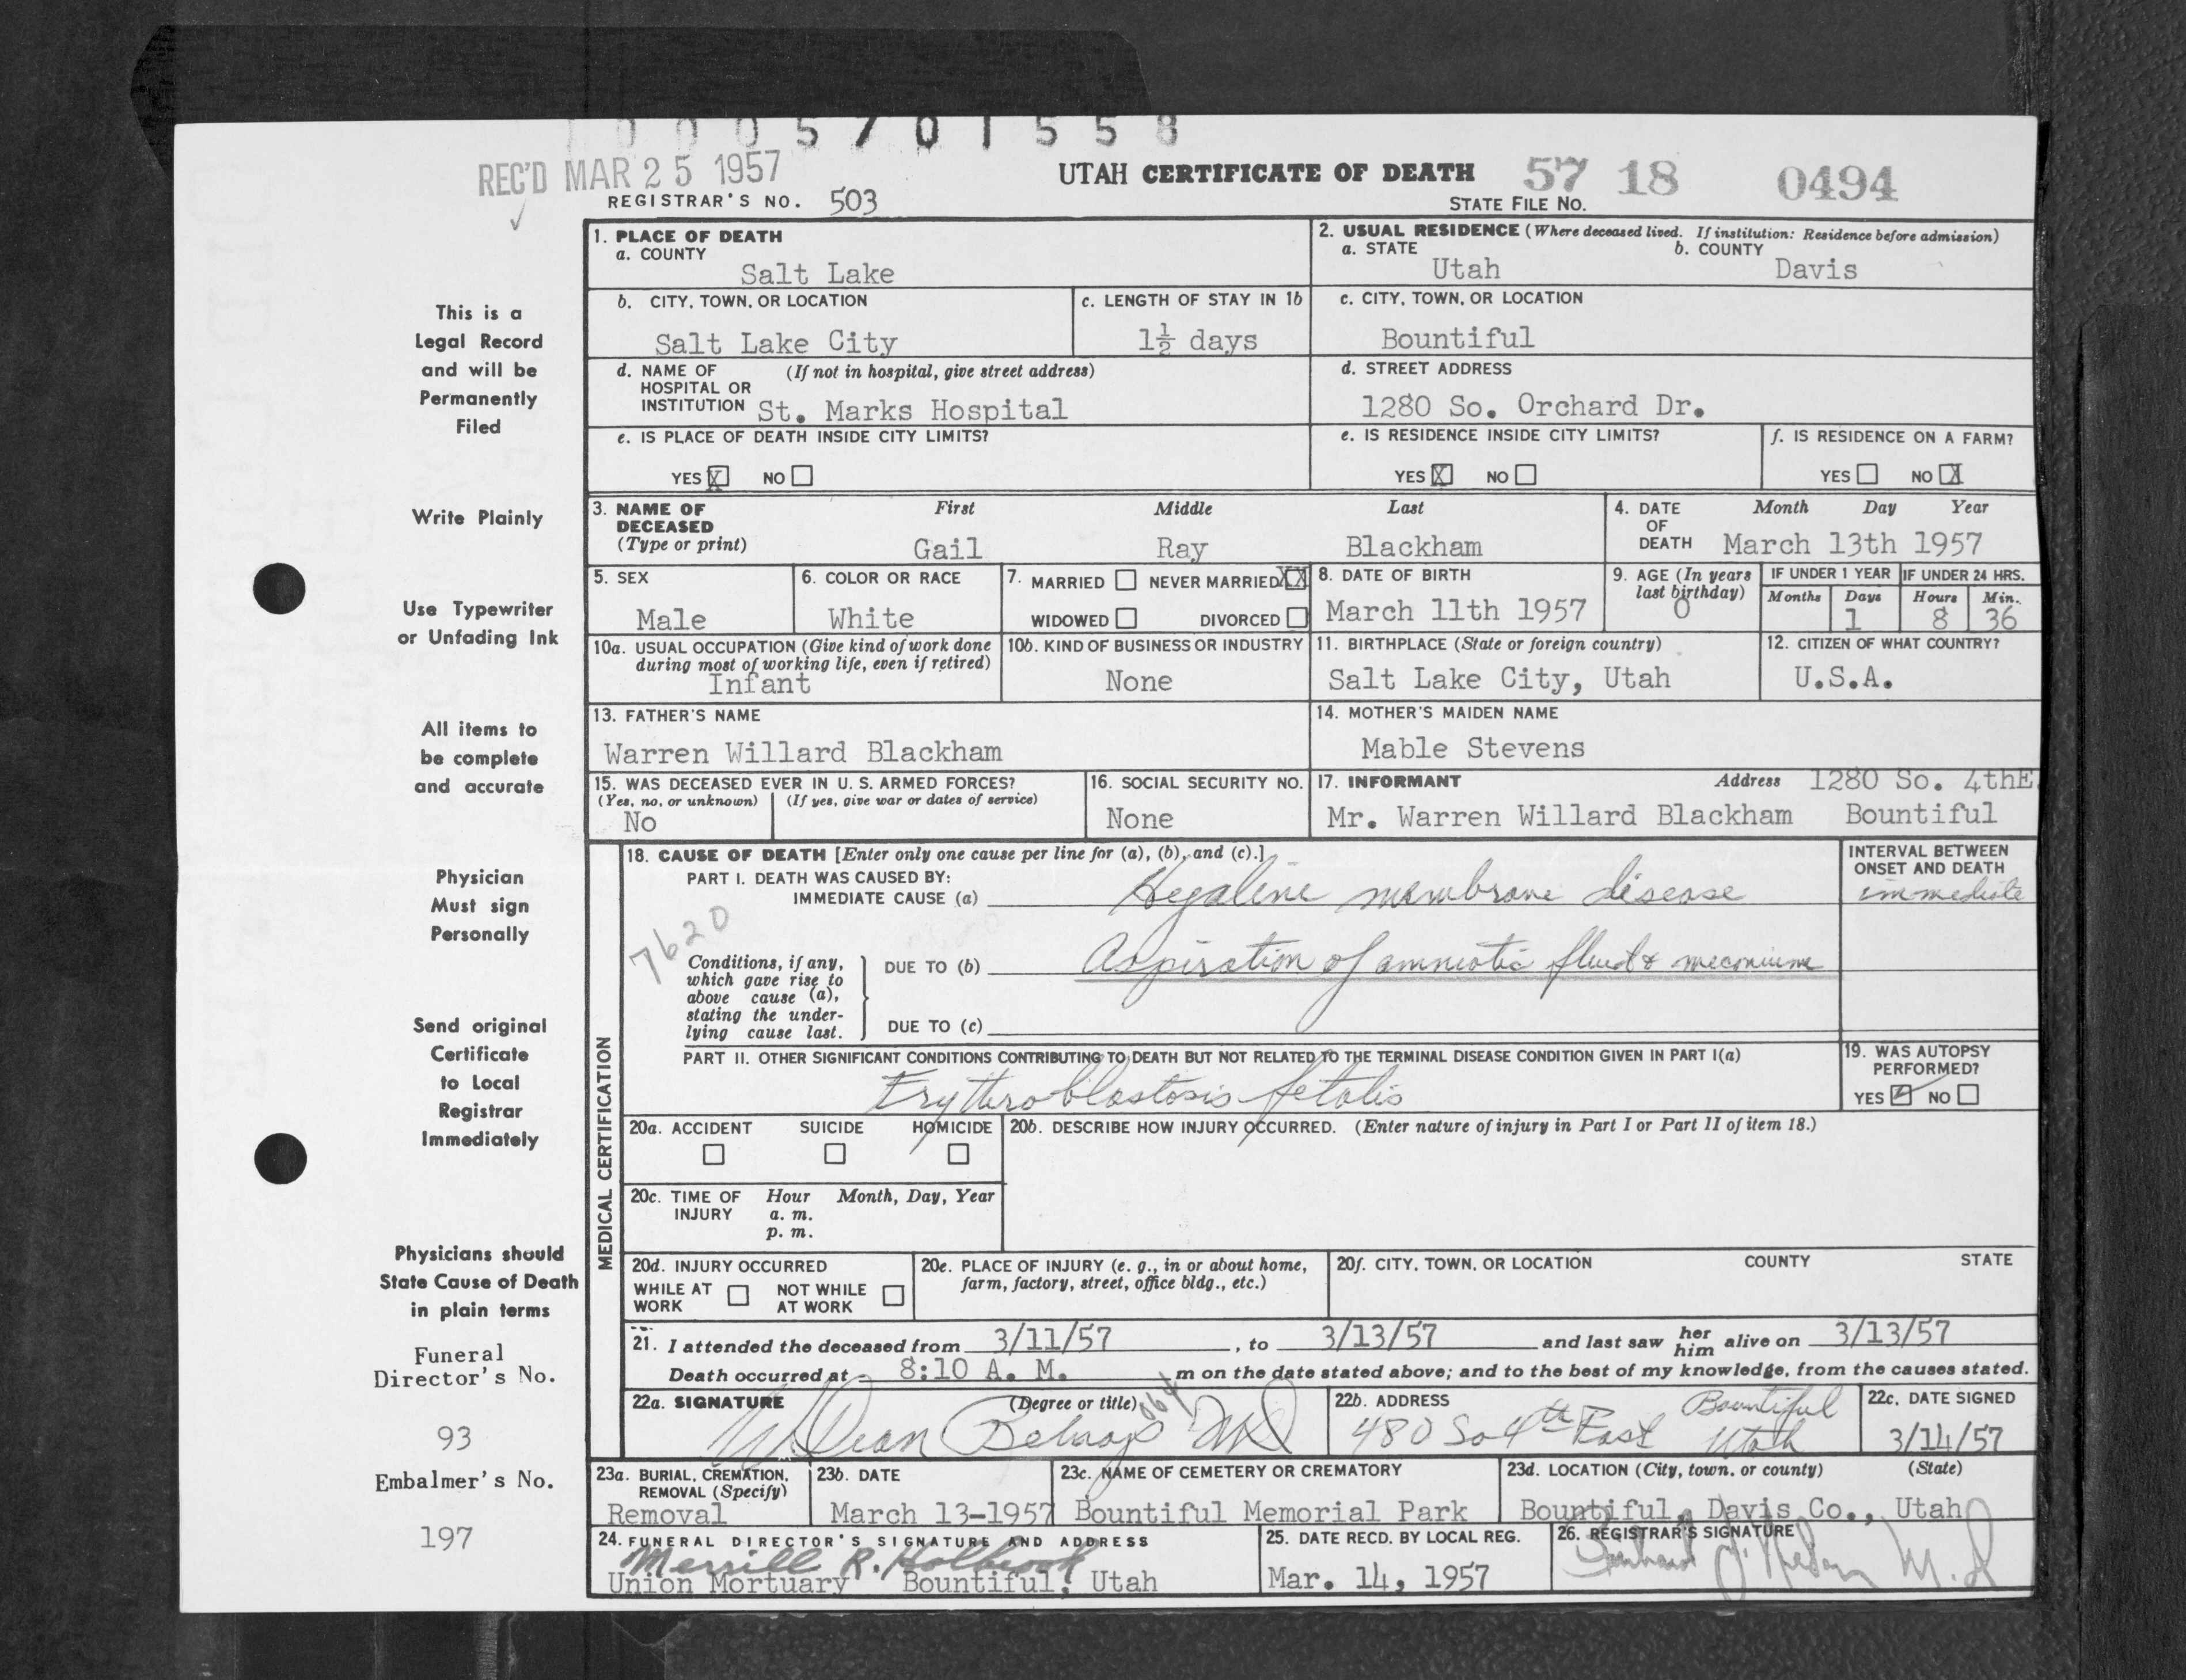 0005701558
REC'D MAR 25 1957
UTAH CERTIFICATE OF DEATH 57 18 0494
REGISTRAR'S NO. 503 STATE FILE No.
✓
This is a
Legal Record
and will be
Permanently
Filed
Write Plainly
Use Typewriter
or Unfading Ink
All items to
be complete
and accurate
Physician
Must sign
Personally
Send original
Certificate
to Local
Registrar
Immediately
Physicians should
State Cause of Death
in plain terms
Funeral
Director's No.
93
Embalmer's No.
197
1. PLACE OF DEATH
a. COUNTY
Salt Lake
2. USUAL RESIDENCE (Where deceased lived. If institution: Residence before admission)
a. STATE b. COUNTY
Utah Davis
b. CITY, TOWN, OR LOCATION
Salt Lake City
c. LENGTH OF STAY IN 1b
1½ days
c. CITY, TOWN, OR LOCATION
Bountiful
d. NAME OF (If not in hospital, give street address)
HOSPITAL OR
INSTITUTION St. Marks Hospital
d. STREET ADDRESS
1280 So. Orchard Dr.
e. IS PLACE OF DEATH INSIDE CITY LIMITS?
YES X NO
e. IS RESIDENCE INSIDE CITY LIMITS?
YES X NO
f. IS RESIDENCE ON A FARM?
YES NO X
3. NAME OF First Middle Last
DECEASED
(Type or print) Gail Ray Blackham
4. DATE Month Day Year
OF
DEATH March 13th 1957
5. SEX
Male
6. COLOR OR RACE
White
7. MARRIED NEVER MARRIED XX
WIDOWED DIVORCED
8. DATE OF BIRTH
March 11th 1957
9. AGE (In years
last birthday)
0
IF UNDER 1 YEAR IF UNDER 24 HRS.
Months Days Hours Min.
1 8 36
10a. USUAL OCCUPATION (Give kind of work done
during most of working life, even if retired)
Infant
10b. KIND OF BUSINESS OR INDUSTRY
None
11. BIRTHPLACE (State or foreign country)
Salt Lake City, Utah
12. CITIZEN OF WHAT COUNTRY?
U.S.A.
13. FATHER'S NAME
Warren Willard Blackham
14. MOTHER'S MAIDEN NAME
Mable Stevens
15. WAS DECEASED EVER IN U. S. ARMED FORCES?
(Yes, no, or unknown) (If yes, give war or dates of service)
No
16. SOCIAL SECURITY NO.
None
17. INFORMANT Address 1280 So. 4thE
Mr. Warren Willard Blackham Bountiful
MEDICAL CERTIFICATION
18. CAUSE OF DEATH [Enter only one cause per line for (a), (b), and (c).]
PART I. DEATH WAS CAUSED BY:
IMMEDIATE CAUSE (a) Hyaline membrane disease
INTERVAL BETWEEN
ONSET AND DEATH
immediate
7620
Conditions, if any,
which gave rise to
above cause (a),
stating the under-
lying cause last.
DUE TO (b) Aspiration of amniotic fluid & meconium
DUE TO (c)
PART II. OTHER SIGNIFICANT CONDITIONS CONTRIBUTING TO DEATH BUT NOT RELATED TO THE TERMINAL DISEASE CONDITION GIVEN IN PART I(a)
Erythroblastosis fetalis
19. WAS AUTOPSY
PERFORMED?
YES ✓ NO
20a. ACCIDENT SUICIDE HOMICIDE
20b. DESCRIBE HOW INJURY OCCURRED. (Enter nature of injury in Part I or Part II of item 18.)
20c. TIME OF Hour Month, Day, Year
INJURY a. m.
p. m.
20d. INJURY OCCURRED
WHILE AT NOT WHILE
WORK AT WORK
20e. PLACE OF INJURY (e. g., in or about home,
farm, factory, street, office bldg., etc.)
20f. CITY, TOWN, OR LOCATION COUNTY STATE
21. I attended the deceased from 3/11/57, to 3/13/57 and last saw her him alive on 3/13/57
Death occurred at 8:10 A. M. m on the date stated above; and to the best of my knowledge, from the causes stated.
22a. SIGNATURE (Degree or title) 064
W Dean Belnap MD
22b. ADDRESS
480 So 4th East Bountiful Utah
22c. DATE SIGNED
3/14/57
23a. BURIAL, CREMATION,
REMOVAL (Specify)
Removal
23b. DATE
March 13-1957
23c. NAME OF CEMETERY OR CREMATORY
Bountiful Memorial Park
23d. LOCATION (City, town, or county) (State)
Bountiful, Davis Co., Utah
24. FUNERAL DIRECTOR'S SIGNATURE AND ADDRESS
Merrill R. Holbrook
Union Mortuary Bountiful, Utah
25. DATE RECD. BY LOCAL REG.
Mar. 14, 1957
26. REGISTRAR'S SIGNATURE
M.D